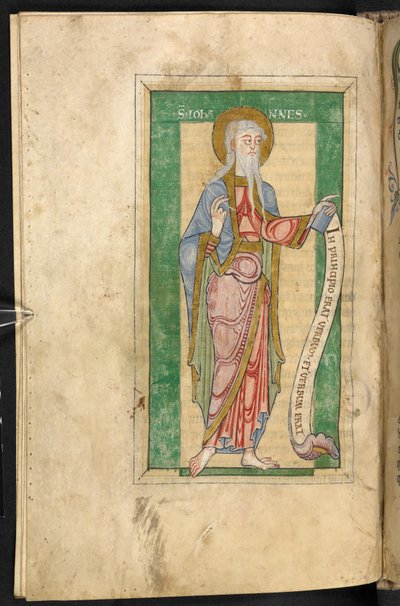 S IOHA NNES
IN PRINCIPIO ERAT VERBUM ET VERBUM ERAT